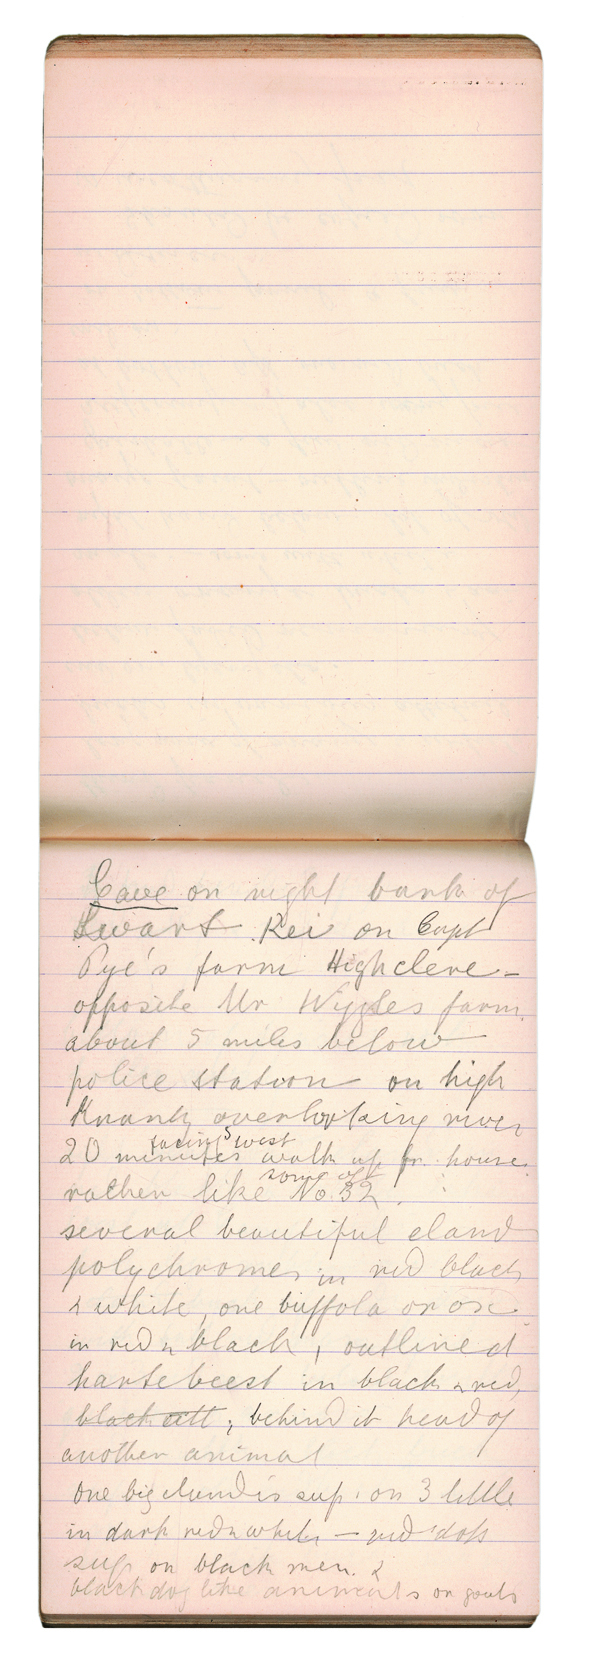 Cave on right bank of
Swart Kei on Capt
Pye's farm Highclere -
opposite Mr Wiggles farm
about 5 miles below
police station on high
Kranz overlooking river
facing west
20 minutes walk up fr. house
some of
rather like No. 32.
several beautiful eland
polychromes in red black
& white, one buffola or ox
in red & black, outlined
hartebeest in black & red,
black ; behind it head of
another animal
One big eland is sup. on 3 little
in dark red & white - red dots
sup on black men. &
black dog like animals or goats